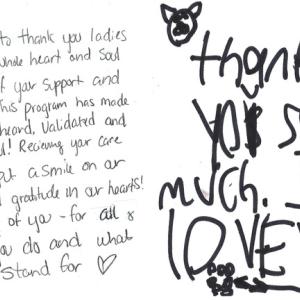 to thank you ladies
whole heart and soul
f your support and
This program has made
heard, validated and
! Recieving your care
put a smile on our
d gratitude in our hearts!
of you - for all &
you do and what
stand for ♡
thank
you so
much.
LOVE